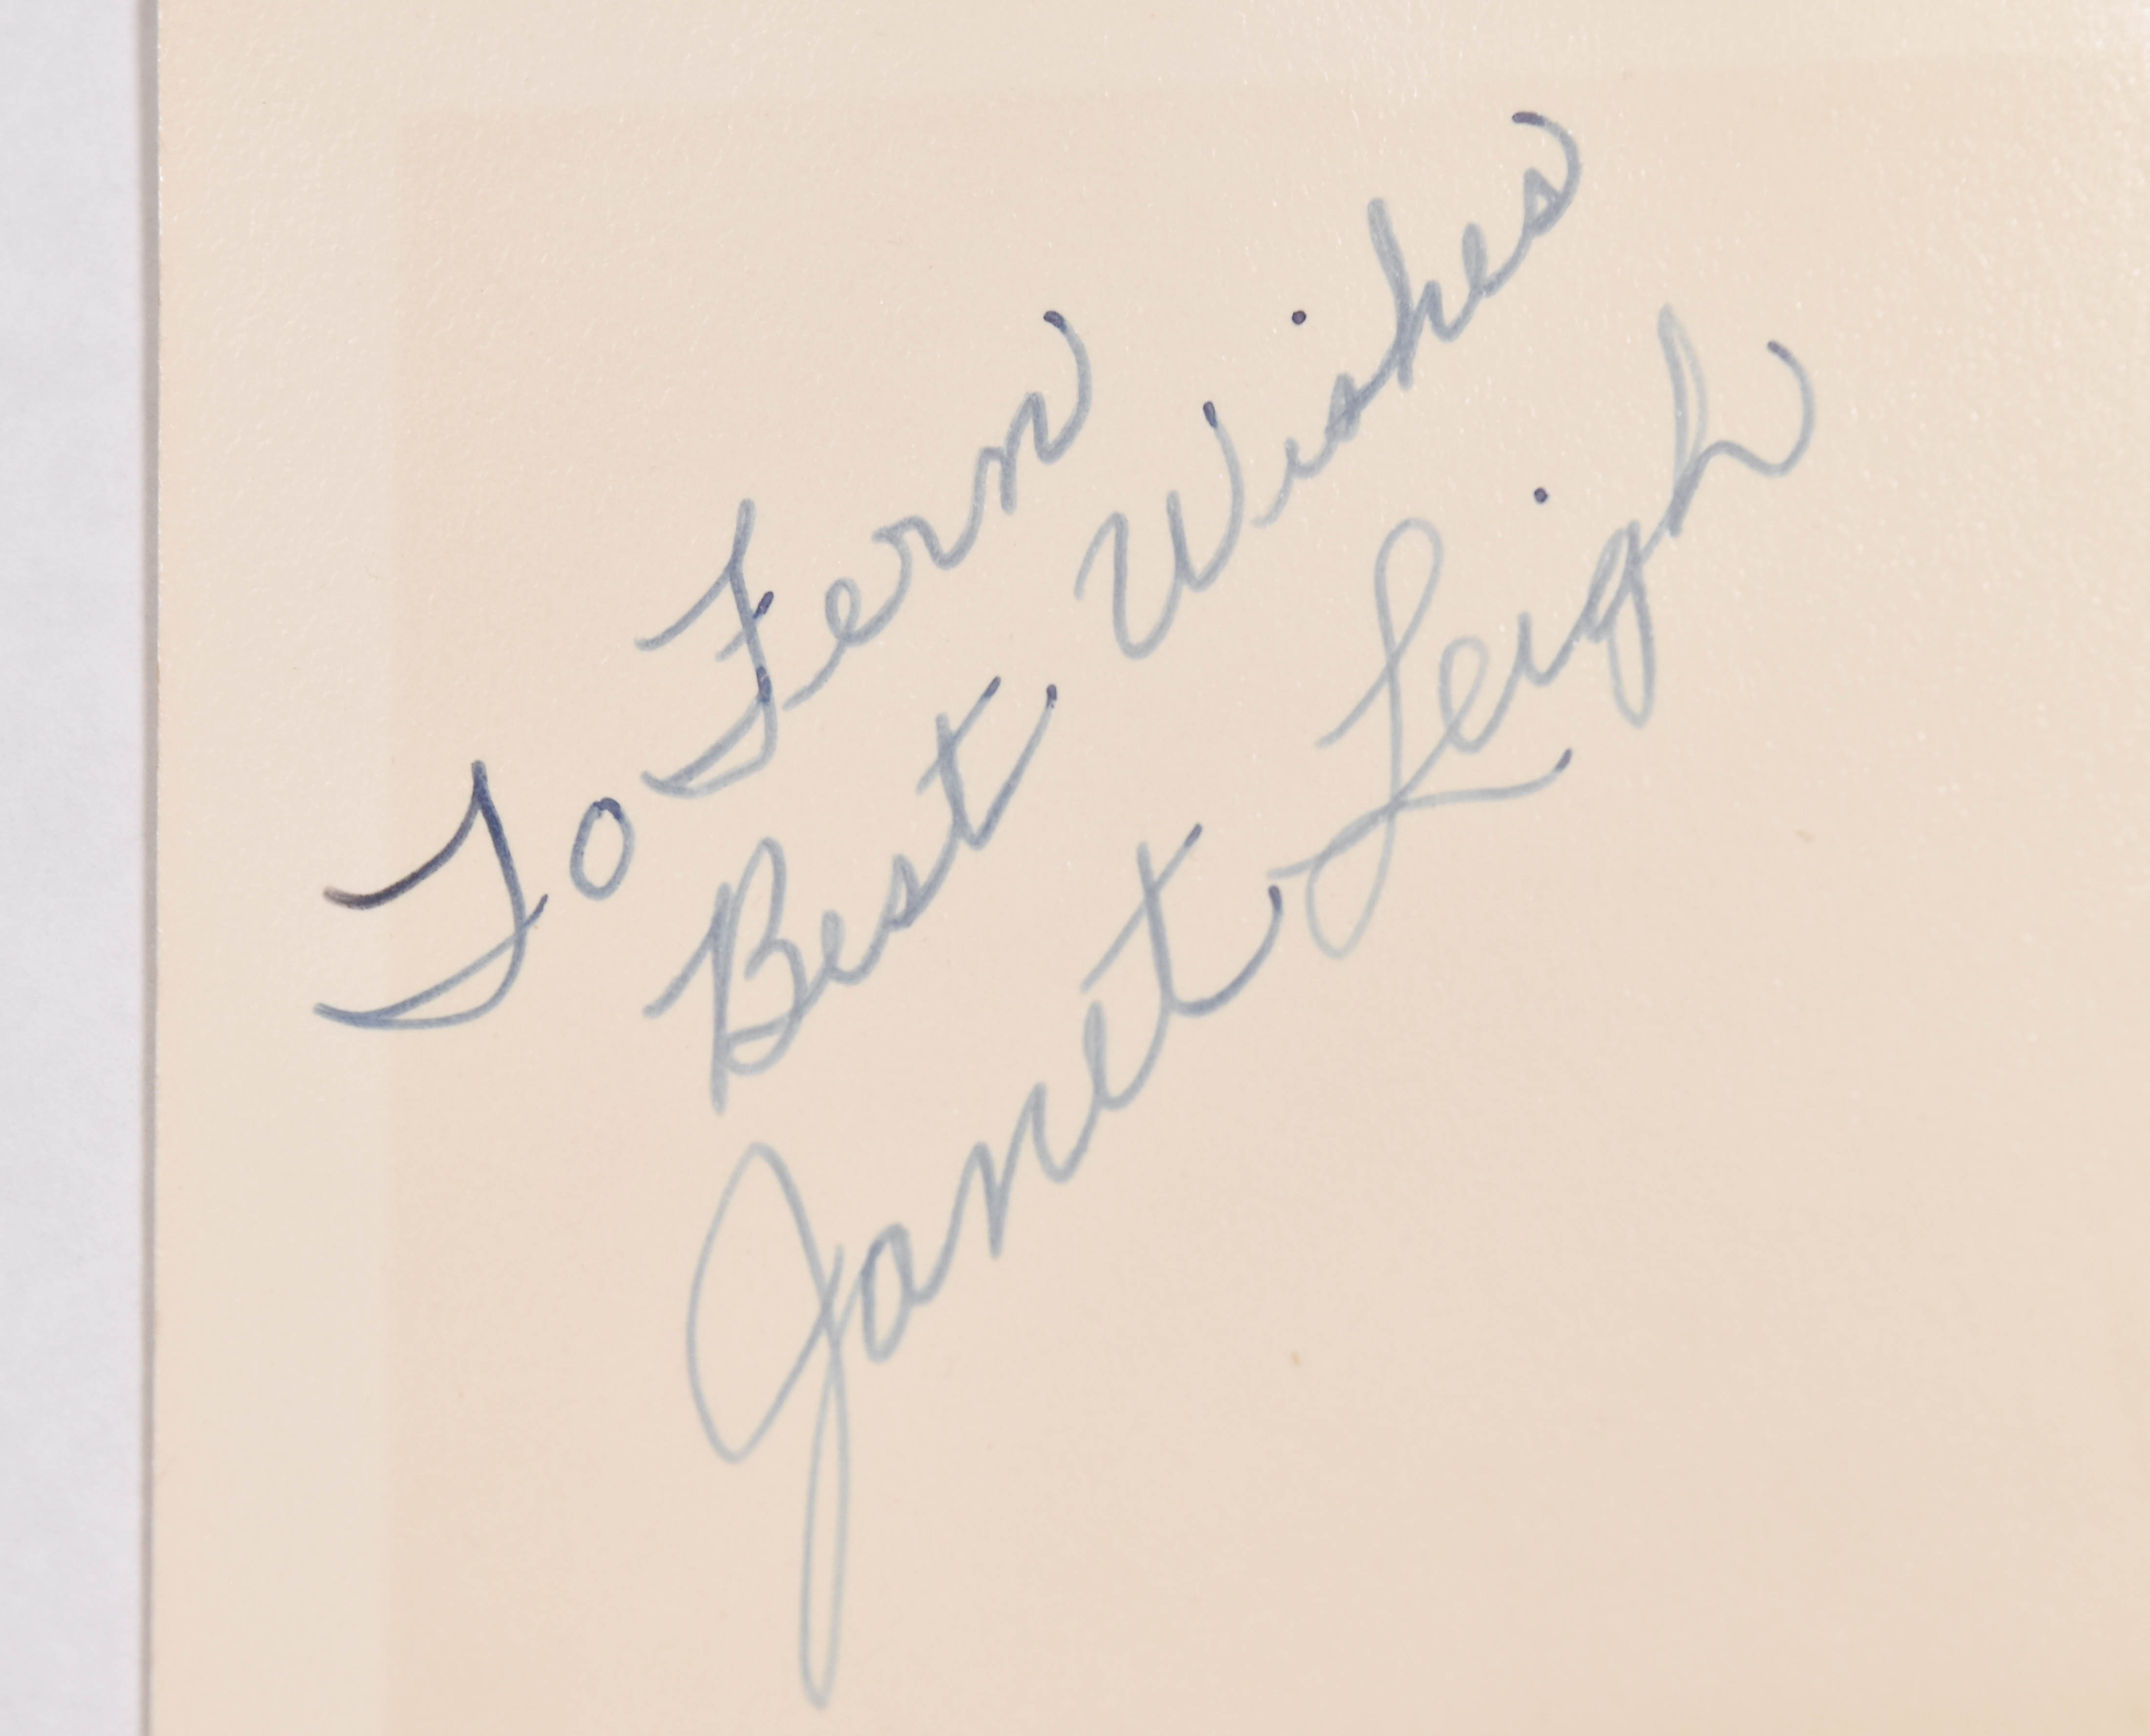 To Fern
Best Wishes
Janet Leigh